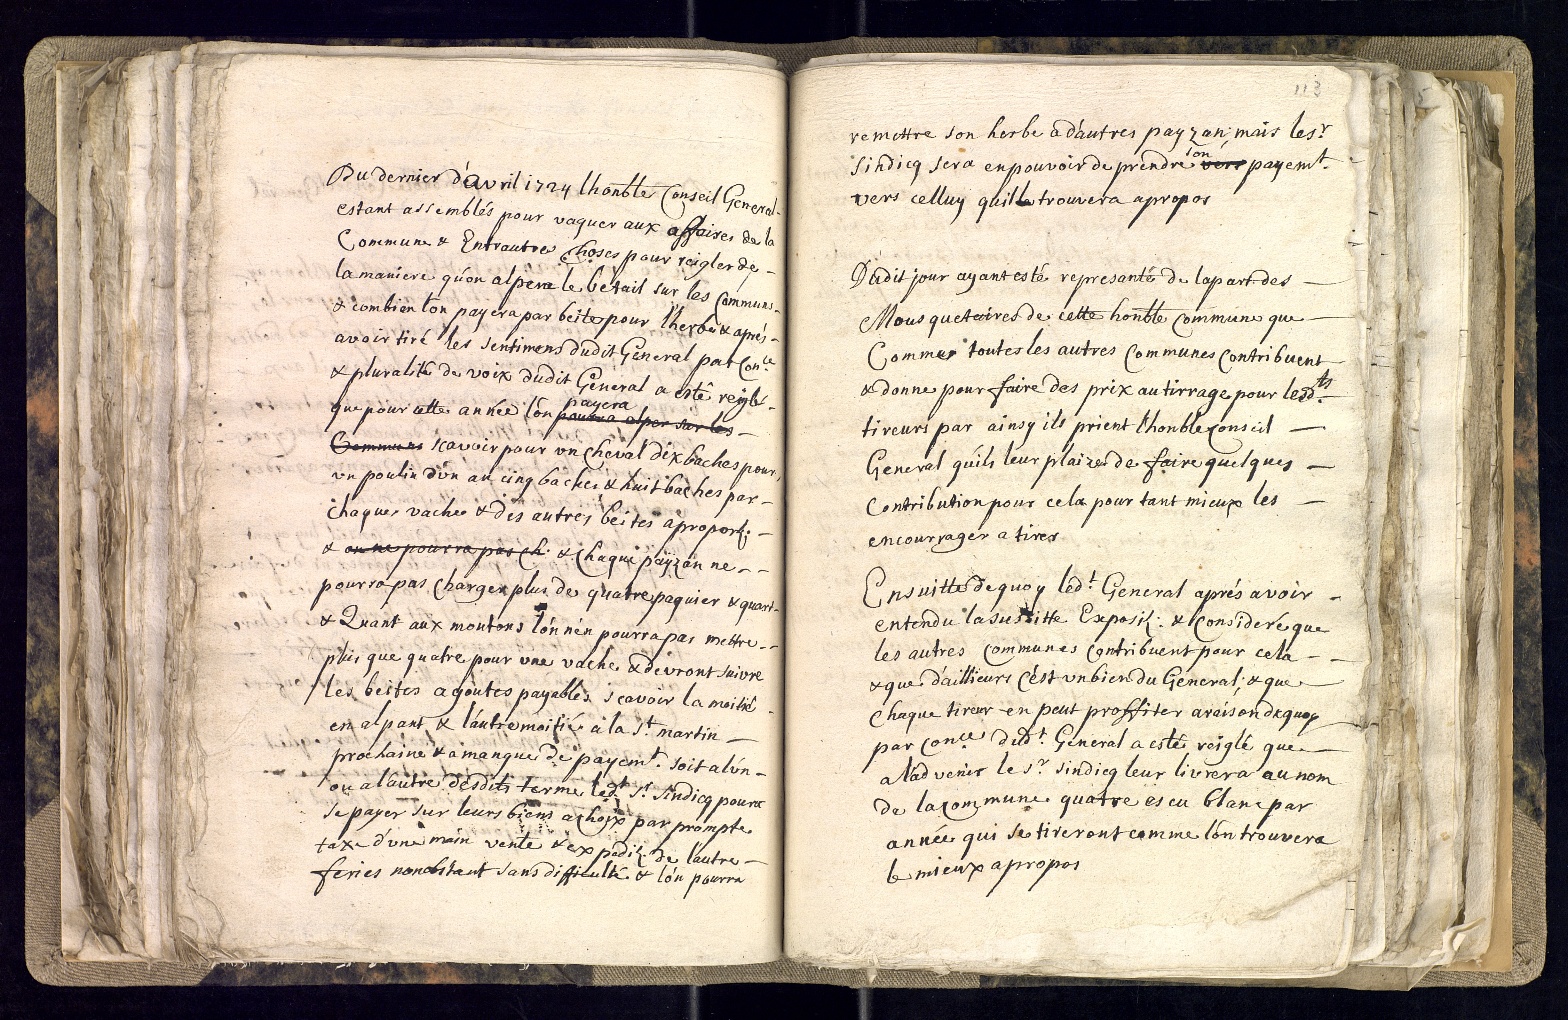 Du dernier d'avril 1724 lhonble Conseil General
estant assemblés pour vaquer aux affaires de la
Commune & Entrautre Choses pour reigler de
la maniere qu'on alpera le bétail sur les Communs
& combien lon payera par beste pour lherbe & aprés
avoir tiré les sentimens dudit General par Con.ce
& pluralité de voix dudit General a esté reiglé
que pour cette année l'on payera pourra alper sur les
Communs scavoir pour un Cheval dix baches pour
un poulin d'un an cinq baches & huit baches par
chaque vache & des autres bestes a proporti:
& on ne pourra pas ch. & Chaque payzan ne
pourra pas charger plus de quatre paquier & quart
& Quant aux moutons lón nén pourra pas mettre
plus que quatre pour une vache & devront suivre
les bestes agoutes payables scavoir la moitié
en alpant & láutre moitié a la St. martin
prochaine & a manque de payemt. soit a lún
ou a láutre desdits terme ledt. Sr. Sindicq pourra
se payer sur leurs biens a choix par prompte
taxe dúne main vente & expediti: de lautre
feries nonobstant sans difficulté & lón pourra
113
remettre son herbe a d'autres payzan, mais le sr
Sindicq sera en pouvoir de prendre son vers payemt.
vers celluy quil le trouvera apropos
Dudit jour ayant esté representé de la part des
Mousquetaires de cette honble Commune que
Comme toutes les autres Communes Contribuent
& donne pour faire des prix au tirrage pour lesdts.
tireurs par ainsy ils prient lhonble Conseil
General quils leur plaize de faire quelques
Contribution pour cela pour tant mieux les
encourrager a tirer
Ensuitte de quoy ledt General aprés avoir
entendu la susditte Expositi: & Consideré que
les autres Communes Contribuent pour cela
& que d'aillieurs c'est un bien du General, & que
Chaque tireur en peut proffiter a raison de quoy
par Con.ce dudt. General a esté reiglé que
a ladvenir le sr. Sindicq leur livrera au nom
de la Commune quatre escu blanc par
année qui se tireront comme lón trouvera
le mieux apropos